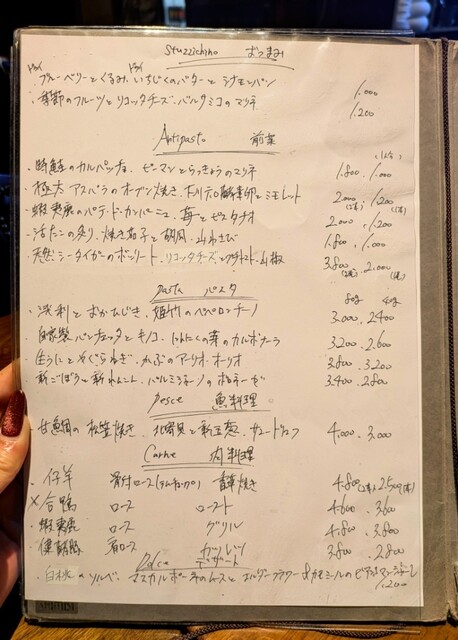 Stuzzichino おつまみ
・ブルーベリーとくるみ、いちじくのバターとシナモンパン 1.000
・季節のフルーツとリコッタチーズ・バルサミコのマリネ 1.200
Antipasto 前菜
・時鮭のカルパッチョ、ピーマンとらっきょうのマリネ 1.800 1.000
・極太アスパラのオーブン焼き、 とミモレット 2.000 1.200
・蝦夷鹿のパテ・ド・カンパーニュ、苺とピスタチオ 2.000 1.200
・活たこの炙り、焼き茄子と胡瓜、山わさび 1.800 1.000
・天然シータイガーのボンリート、リコッタチーズとフルーツトマト、山椒 3.800 2.000
Pasta パスタ
80g 40g
・浅利とまつひじき、姫竹のペペロンチーノ 3.000 2.400
・自家製パンチェッタとキノコ、にんにくの芽のカルボナーラ 3.200 2.600
・生うにと ねぎ、かぶのアーリオ・オーリオ 3.800 3.200
・新ごぼうと新れんこん、パルミジャーノのボロネーゼ 3.400 2.800
Pesce 魚料理
甘鯛の松笠焼き、北寄貝と 4.000 3.000
Carne 肉料理
・仔羊 骨付ロース 香草焼き 4.800 2.500
×合鴨 ロース ロースト 4.600 3.600
・蝦夷鹿 ロース グリル 4.800 3.800
・健酵豚 肩ロース カツレツ 3.800 2.800
Dolce デザート
・白桃のソルベ、マスカルポーネのムースとエルダーフラワー 1.200